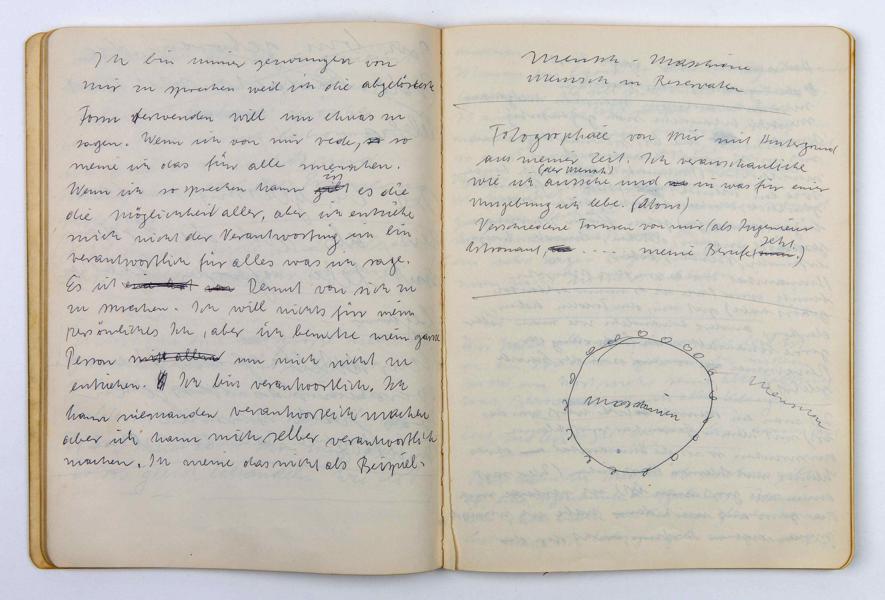 Ich bin immer gezwungen von
mir zu sprechen weil ich die abgelöste
Form verwenden will um etwas zu
sagen. Wenn ich von mir rede, so
meine ich das für alle menschen.
Wenn ich so sprechen kann ist es die
die möglichkeit aller, aber ich entziehe
mich nicht der Verantwortung ich bin
verantwortlich für alles was ich sage.
Es ist von sich zu
zu machen. Ich will nichts für mein
persönliches Ich, aber ich benutze mein ganze
Person um mich nicht zu
entziehen. Ich bin verantwortlich. Ich
kann niemanden verantwortlich machen
aber ich kann mich selber verantwortlich
machen. Ich meine das nicht als Beispiel.
Mensch - Maschine
Mensch in Reservaten
Fotographie von mir mit Hintergrund
aus meiner Zeit. Ich veranschauliche
(der Mensch)
wie ich aussehe und in was für einer
Umgebung ich lebe. (Atom)
Verschiedene Formen von mir (als Ingenieur
Astronaut, .... meine Berufe)
Maschinen
Menschen